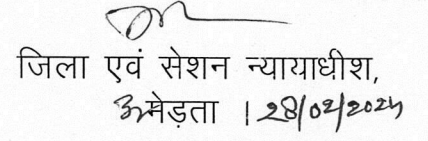 जिला एवं सेशन न्यायाधीश,
मेड़ता । 28/02/2024